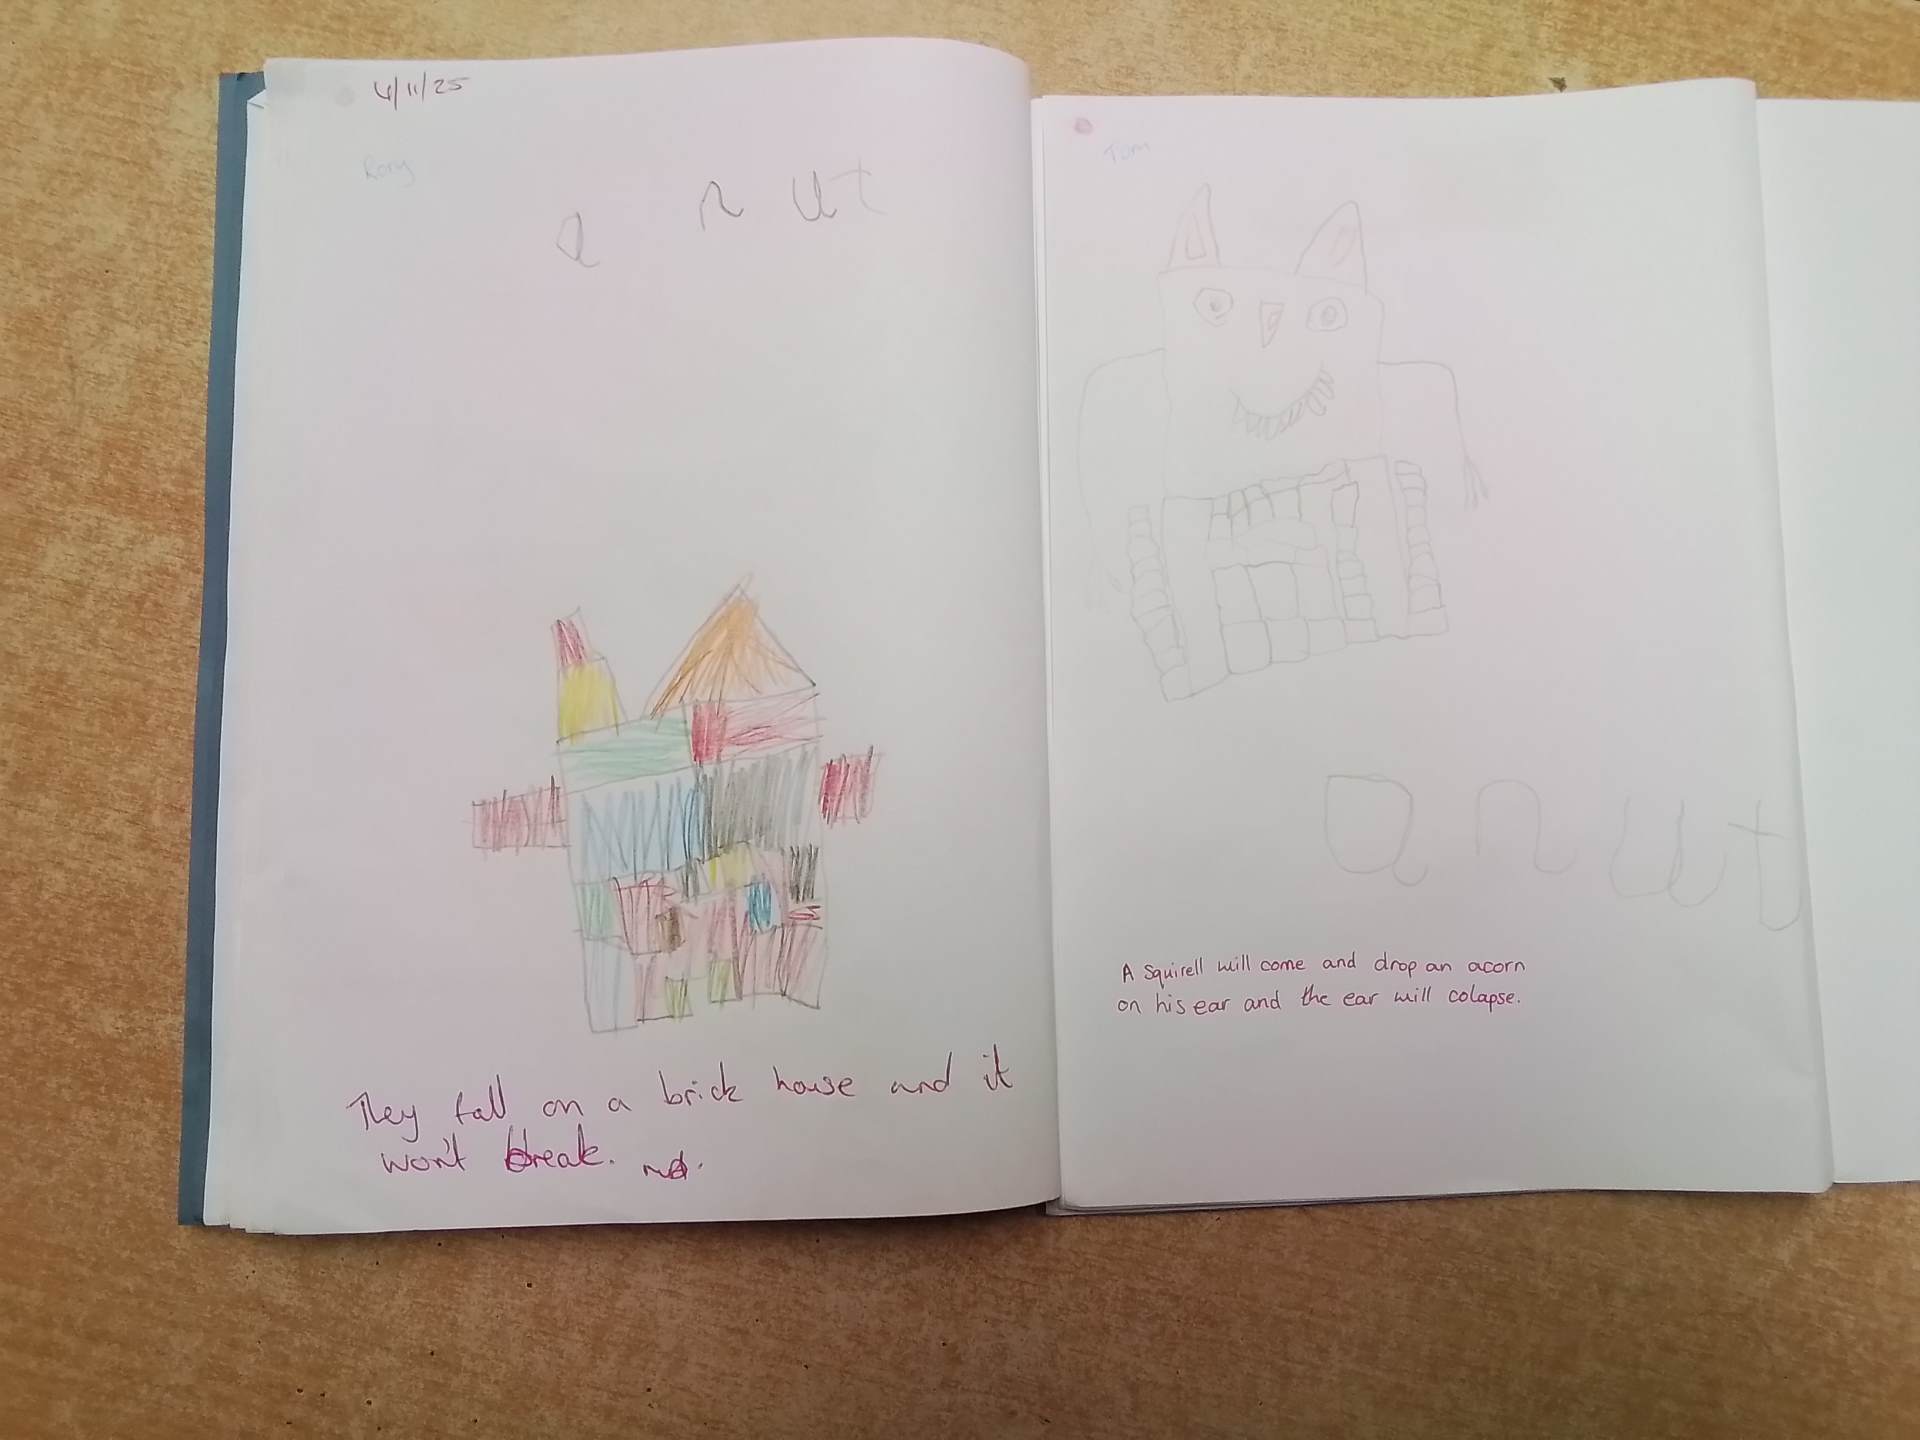 4/11/25
Rory
a n ut
They fall on a brick house and it
won't break.
Tom
a n u t
A squirell will come and drop an acorn
on his ear and the ear will colapse.